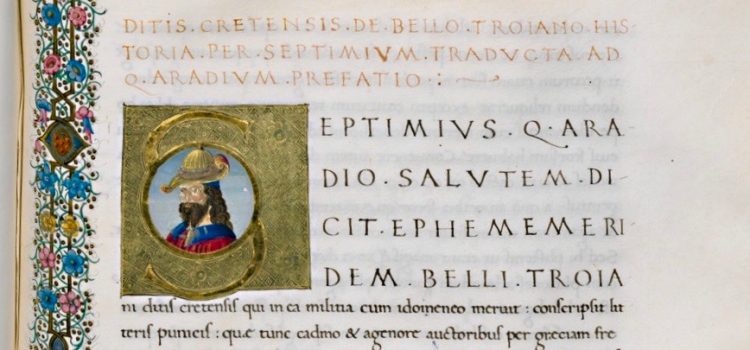 DITIS. CRETENSIS. DE. BELLO. TROIANO. HIS
TORIA. PER. SEPTIMIVM. TRADVCTA. AD
Q. ARADIVM. PREFATIO :
SEPTIMIVS. Q. ARA
DIO. SALVTEM. DI
CIT. EPHEMEMERI
DEM. BELLI. TROIA
ni ditis cretensis qui in ea militia cum idomeneo meruit: conscripsit lit
teris punicis: quæ tunc cadmo & agenore auctoribus per græciam fre